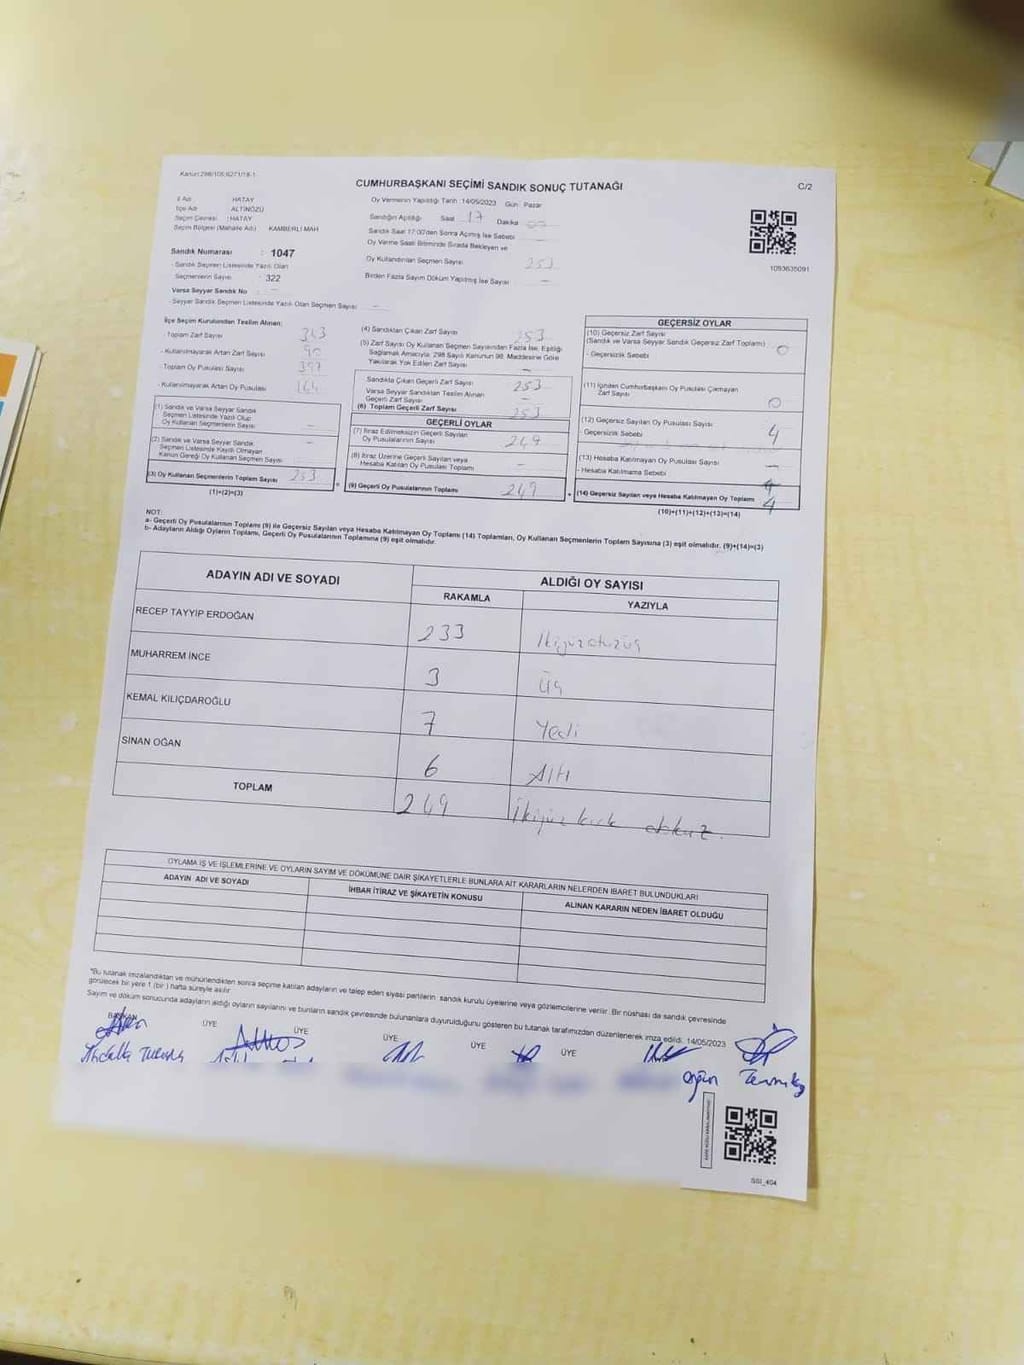 Kanun:298/105;6271/18-1
CUMHURBAŞKANI SEÇİMİ SANDIK SONUÇ TUTANAĞI
C/2
İl Adı : HATAY
İlçe Adı : ALTINÖZÜ
Seçim Çevresi : HATAY
Seçim Bölgesi (Mahalle Adı) : KAMBERLİ MAH
Sandık Numarası : 1047
- Sandık Seçmen Listesinde Yazılı Olan
Seçmenlerin Sayısı : 322
Varsa Seyyar Sandık No : -
- Seyyar Sandık Seçmen Listesinde Yazılı Olan Seçmen Sayısı : -
Oy Vermenin Yapıldığı Tarih: 14/05/2023 Gün: Pazar
Sandığın Açıldığı Saat 17 Dakika
Sandık Saat 17:00'den Sonra Açılmış İse Sebebi
Oy Verme Saati Bitiminde Sırada Bekleyen ve
Oy Kullandırılan Seçmen Sayısı 253
Birden Fazla Sayım Döküm Yapılmış İse Sayısı -
1093635091
İlçe Seçim Kurulundan Teslim Alınan:
- Toplam Zarf Sayısı 343
- Kullanılmayarak Artan Zarf Sayısı 90
- Toplam Oy Pusulası Sayısı 397
- Kullanılmayarak Artan Oy Pusulası 144
(1) Sandık ve Varsa Seyyar Sandık
Seçmen Listesinde Yazılı Olup
Oy Kullanan Seçmenlerin Sayısı -
(2) Sandık ve Varsa Seyyar Sandık
Seçmen Listesinde Kayıtlı Olmayan
Kanun Gereği Oy Kullanan Seçmen Sayısı -
(3) Oy Kullanan Seçmenlerin Toplam Sayısı 253
(1)+(2)=(3)
(4) Sandıktan Çıkan Zarf Sayısı 253
(5) Zarf Sayısı Oy Kullanan Seçmen Sayısından Fazla İse, Eşitliği
Sağlamak Amacıyla; 298 Sayılı Kanunun 98. Maddesine Göre
Yakılarak Yok Edilen Zarf Sayısı -
Sandıkta Çıkan Geçerli Zarf Sayısı 253
Varsa Seyyar Sandıktan Teslim Alınan
Geçerli Zarf Sayısı -
(6) Toplam Geçerli Zarf Sayısı 253
GEÇERLİ OYLAR
(7) İtiraz Edilmeksizin Geçerli Sayılan
Oy Pusulalarının Sayısı 249
(8) İtiraz Üzerine Geçerli Sayılan veya
Hesaba Katılan Oy Pusulası Toplamı -
(9) Geçerli Oy Pusulalarının Toplamı 249
GEÇERSİZ OYLAR
(10) Geçersiz Zarf Sayısı
(Sandık ve Varsa Seyyar Sandık Geçersiz Zarf Toplamı) 0
- Geçersizlik Sebebi
(11) İçinden Cumhurbaşkanı Oy Pusulası Çıkmayan
Zarf Sayısı 0
(12) Geçersiz Sayılan Oy Pusulası Sayısı 4
- Geçersizlik Sebebi
(13) Hesaba Katılmayan Oy Pusulası Sayısı -
- Hesaba Katılmama Sebebi
(14) Geçersiz Sayılan veya Hesaba Katılmayan Oy Toplamı 4
(10)+(11)+(12)+(13)=(14)
NOT:
a- Geçerli Oy Pusulalarının Toplamı (9) ile Geçersiz Sayılan veya Hesaba Katılmayan Oy Toplamı (14) Toplamları, Oy Kullanan Seçmenlerin Toplam Sayısına (3) eşit olmalıdır. (9)+(14)=(3)
b- Adayların Aldığı Oyların Toplamı, Geçerli Oy Pusulalarının Toplamına (9) eşit olmalıdır.
ADAYIN ADI VE SOYADI ALDIĞI OY SAYISI
RAKAMLA YAZIYLA
RECEP TAYYİP ERDOĞAN 233 İkiyüzotuzüç
MUHARREM İNCE 3 Üç
KEMAL KILIÇDAROĞLU 7 Yedi
SİNAN OĞAN 6 Altı
TOPLAM 249 İkiyüz kırk dokuz.
OYLAMA İŞ VE İŞLEMLERİNE VE OYLARIN SAYIM VE DÖKÜMÜNE DAİR ŞİKAYETLERLE BUNLARA AİT KARARLARIN NELERDEN İBARET BULUNDUKLARI
ADAYIN ADI VE SOYADI İHBAR İTİRAZ VE ŞİKAYETİN KONUSU ALINAN KARARIN NEDEN İBARET OLDUĞU
*Bu tutanak imzalandıktan ve mühürlendikten sonra seçime katılan adayların ve talep eden siyasi partilerin sandık kurulu üyelerine veya gözlemcilerine verilir. Bir nüshası da sandık çevresinde
görülecek bir yere 1 (bir ) hafta süreyle asılır.
Sayım ve döküm sonucunda adayların aldığı oyların sayılarını ve bunların sandık çevresinde bulunanlara duyurulduğunu gösteren bu tutanak tarafımızdan düzenlenerek imza edildi. 14/05/2023
BAŞKAN ÜYE ÜYE ÜYE ÜYE ÜYE
SSI_404